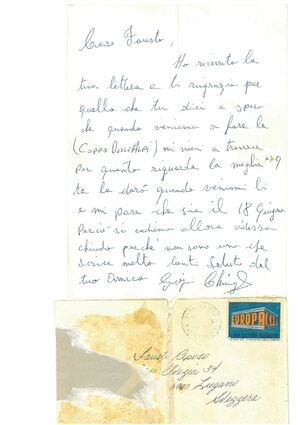 Caro Fausto,
Ho ricevuto la
tua lettera e ti ringrazio per
quello che tu dici e spero
che quando veniamo a fare la
(COPPA DELLE ALPI) mi vieni a trovare
Per quanto riguarda la maglia n° 9
te la darò quando veniamo lì
e mi pare che sia il 18 Giugno
Perciò si vediamo allora adesso
chiudo perché non sono uno che
scrive molto tanti Saluti dal
tuo Amico Gigi
EUROPA
Fausto
Via Odezia 34
6900 Lugano
Svizzera